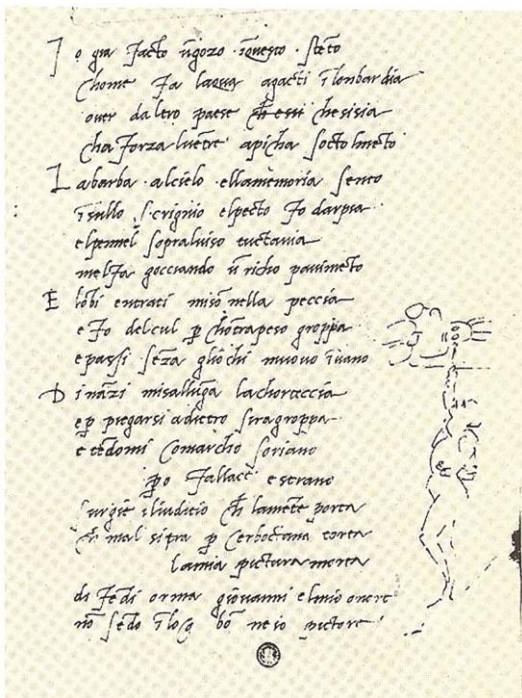 I o gia facto ūgozo īquesto stēto
chome fa lacqua agacti īlonbardia
over daltro paese ch̄ essi chesisia
cha forza luētre apicha socto lmēto
L abarba alcielo ellamemoria sento
īsullo scrignio elpecto fo darpia
elpennel sopraluiso tuctavia
melfa gocciando ū richo pavimēto
E lōbi entrati misō nella peccia
e fo delcul p̄ chōtrapeso groppa
epassi sēza gliochi muovo īvano
D ināzi misallūga lachorteccia
ep̄ piegarsi adietro siragroppa
e tēdomi comarcho soriano
p̄o fallace e strano
surgie iliudicio ch̄ lamēte porta
ch̄ mal sitra p̄ cerboctana torta
lamia pictura morta
difēdi orma giovanni elmio onore
nō sēdo īlocō bō ne io pictore